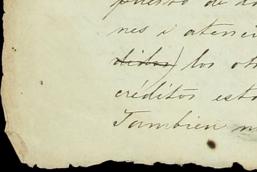 puesto de
nes i atenci
didos) los otr
créditos esta
Tambien n